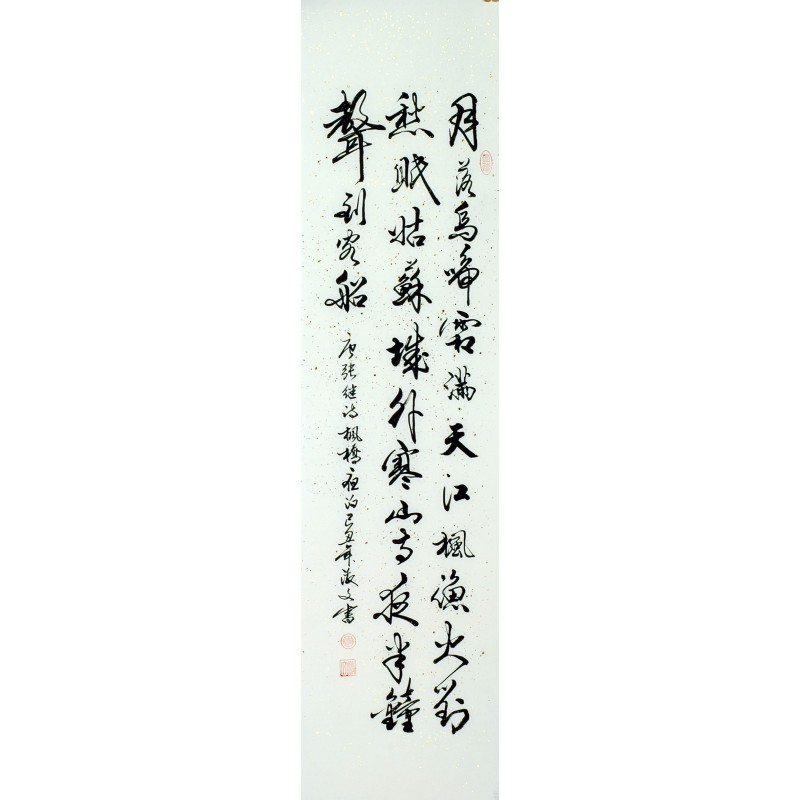 月落烏啼霜滿天江楓漁火對
愁眠姑蘇城外寒山寺夜半鐘
聲到客船
唐張继詩楓橋夜泊己丑年淑文書